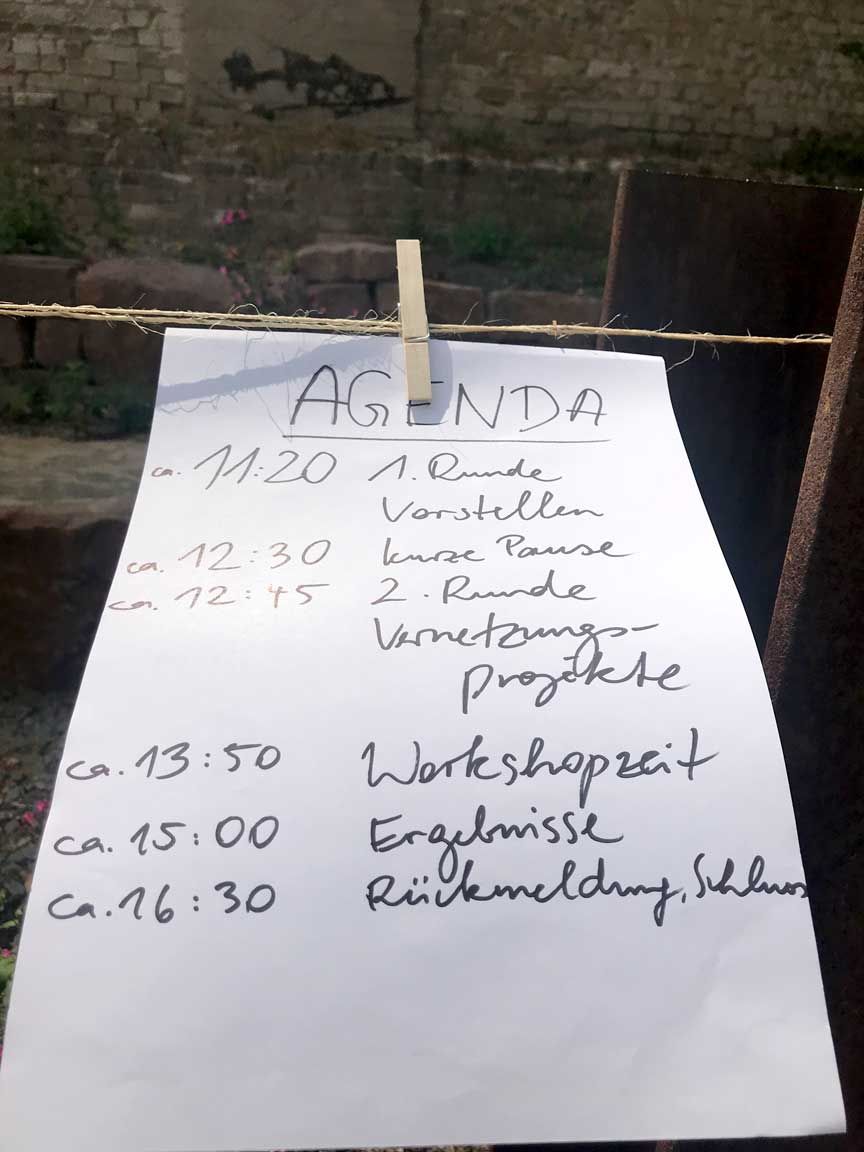 AGENDA
ca. 11:20 1. Runde
Vorstellen
ca. 12:30 kurze Pause
ca. 12:45 2. Runde
Vernetzungs-
projekte
ca. 13:50 Workshopzeit
ca. 15:00 Ergebnisse
ca. 16:30 Rückmeldung, Schluss